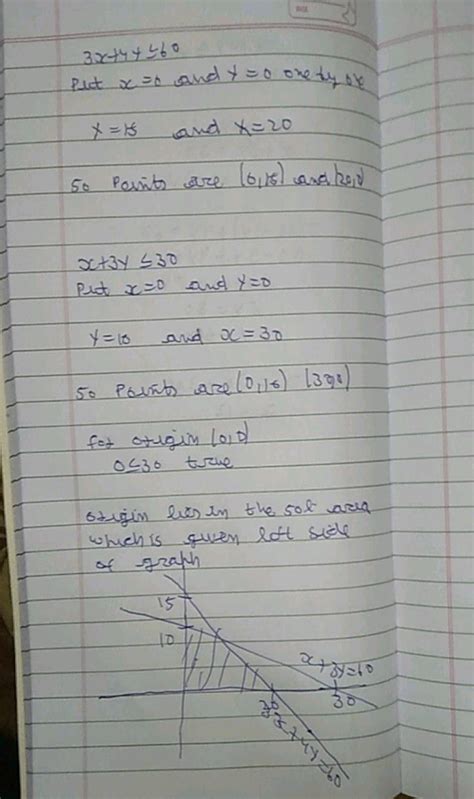 3x+4y≤60
Put x=0 and y=0 one by one
y=15 and x=20
So Points are (0,15) and (20,0)
x+3y≤30
Put x=0 and y=0
y=10 and x=30
So Points are (0,10) (30,0)
for origin (0,0)
0≤30 true
origin lies in the sol area
which is given left side
of graph
15
10
x+3y=60
30
20
3x+4y=60